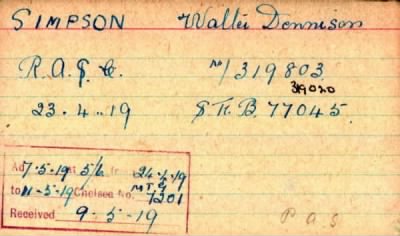 SIMPSON Walter Dennison
R.A.S.C. M/319803
319020
23.4.19 S.K.B. 77045
Ad 7-5-19 at 5/6 fr 24-1-19
to 11-5-19 Chelsea No. MT5/1201
Received 9-5-19
P A S